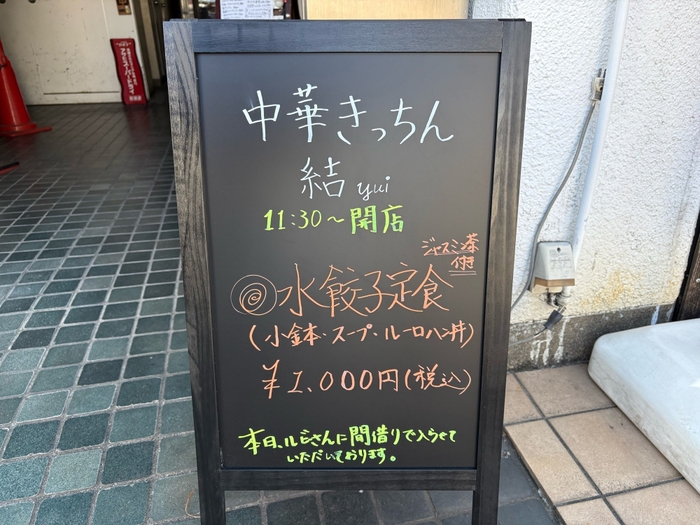 中華きっちん
結 yui
11:30～開店
ジャスミン茶
付き
◎水餃子定食
(小鉢・スープ・ルーロハン丼)
¥1,000円(税込)
本日、ルビさんに間借りで入らせて
いただいております。